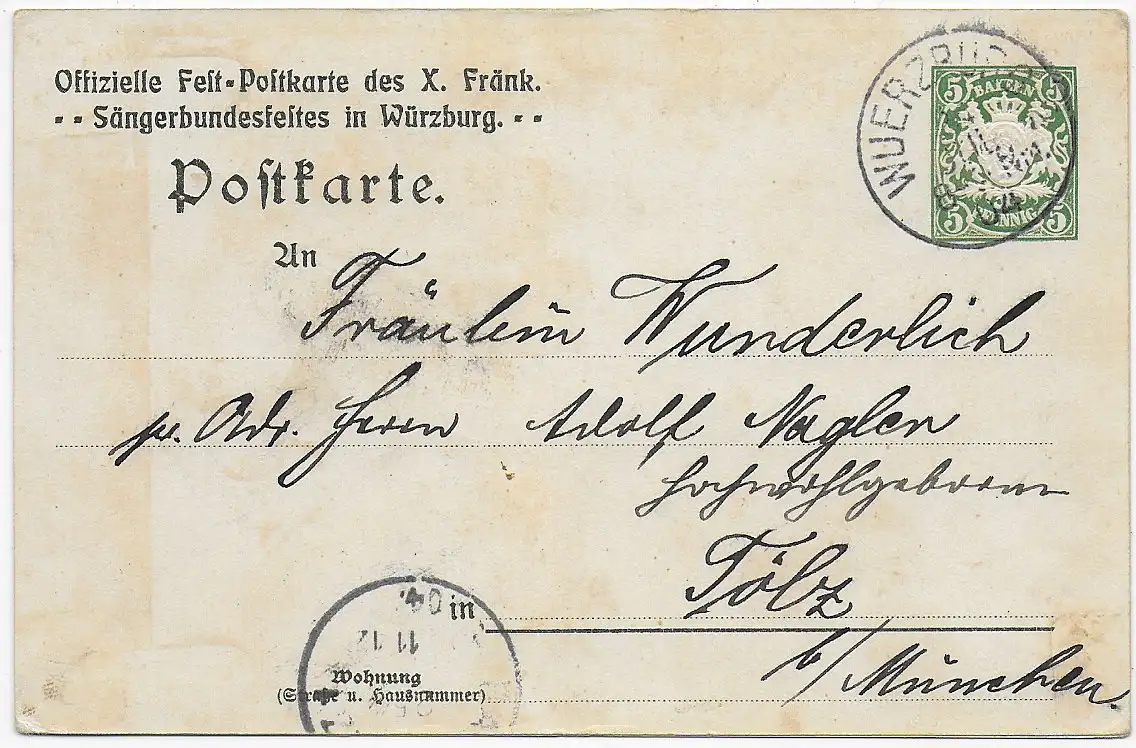 Offizielle Fest-Postkarte des X. Fränk.
-- Sängerbundesfestes in Würzburg. --
WUERZBURG 2
5 BAYERN 5
5 PFENNIG 5
Postkarte.
An Fräulein Wunderlich
pr. Adr. Herrn Adolf Nagler
Hochwohlgeboren
Tölz
04.
in
11 12
b/ München.
Wohnung
(Straße u. Hausnummer)